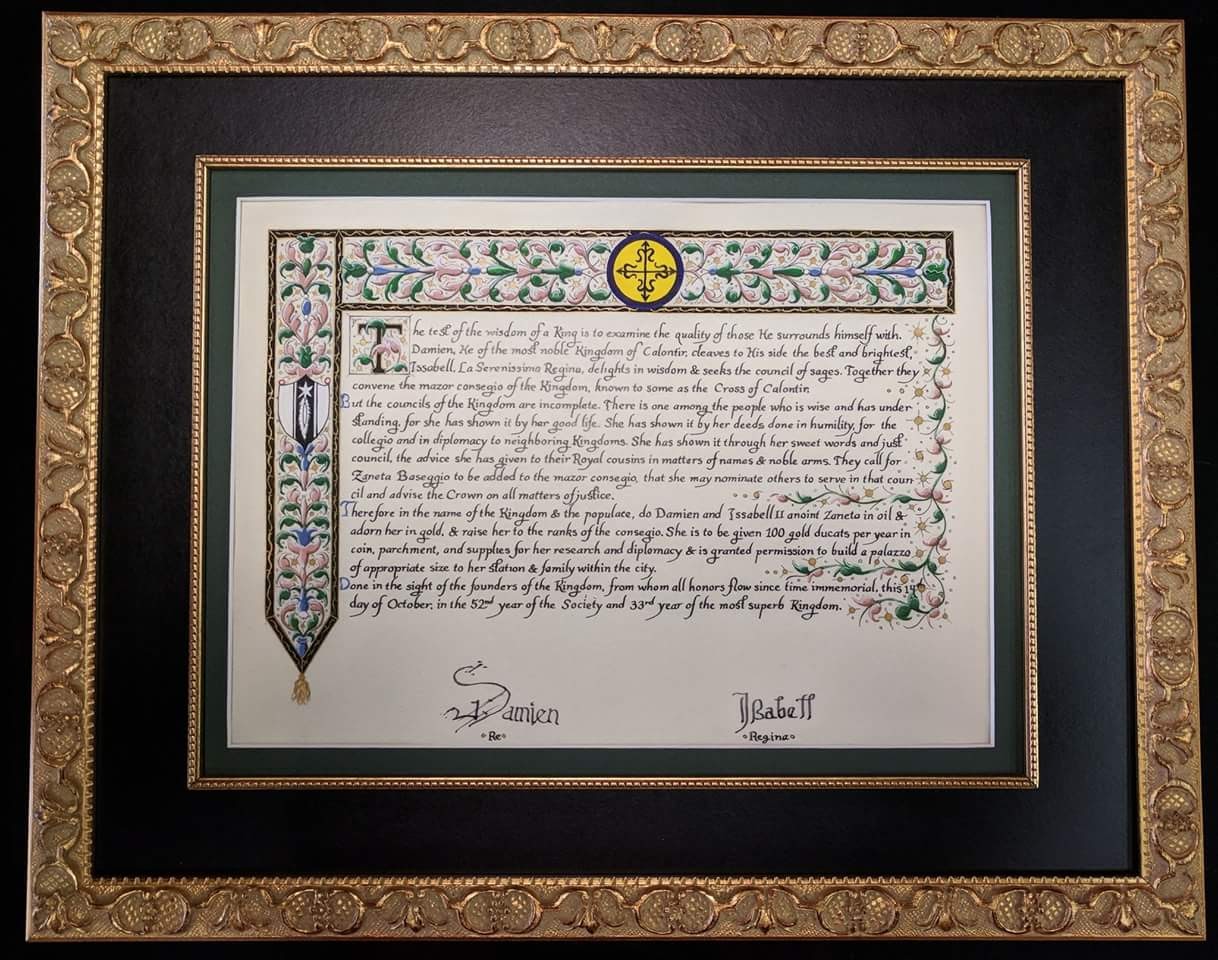 The test of the wisdom of a King is to examine the quality of those He surrounds himself with.
Damien, He of the most noble Kingdom of Calontir, cleaves to His side the best and brightest,
Issabell, La Serenissima Regina, delights in wisdom & seeks the council of sages. Together they
convene the mazor consegio of the Kingdom, known to some as the Cross of Calontir.
But the councils of the Kingdom are incomplete. There is one among the people who is wise and has under
standing, for she has shown it by her good life. She has shown it by her deeds done in humility, for the
collegio and in diplomacy to neighboring Kingdoms. She has shown it through her sweet words and just
council, the advice she has given to their Royal cousins in matters of names & noble arms. They call for
Zaneta Baseggio to be added to the mazor consegio, that she may nominate others to serve in that coun
cil and advise the Crown on all matters of justice.
Therefore in the name of the Kingdom & the populace, do Damien and Issabell II anoint Zaneta in oil &
adorn her in gold, & raise her to the ranks of the consegio. She is to be given 100 gold ducats per year in
coin, parchment, and supplies for her research and diplomacy & is granted permission to build a palazzo
of appropriate size to her station & family within the city.
Done in the sight of the founders of the Kingdom, from whom all honors flow since time immemorial, this
day of October, in the 52nd year of the Society and 33rd year of the most superb Kingdom.
Damien Isabell
Re Regina